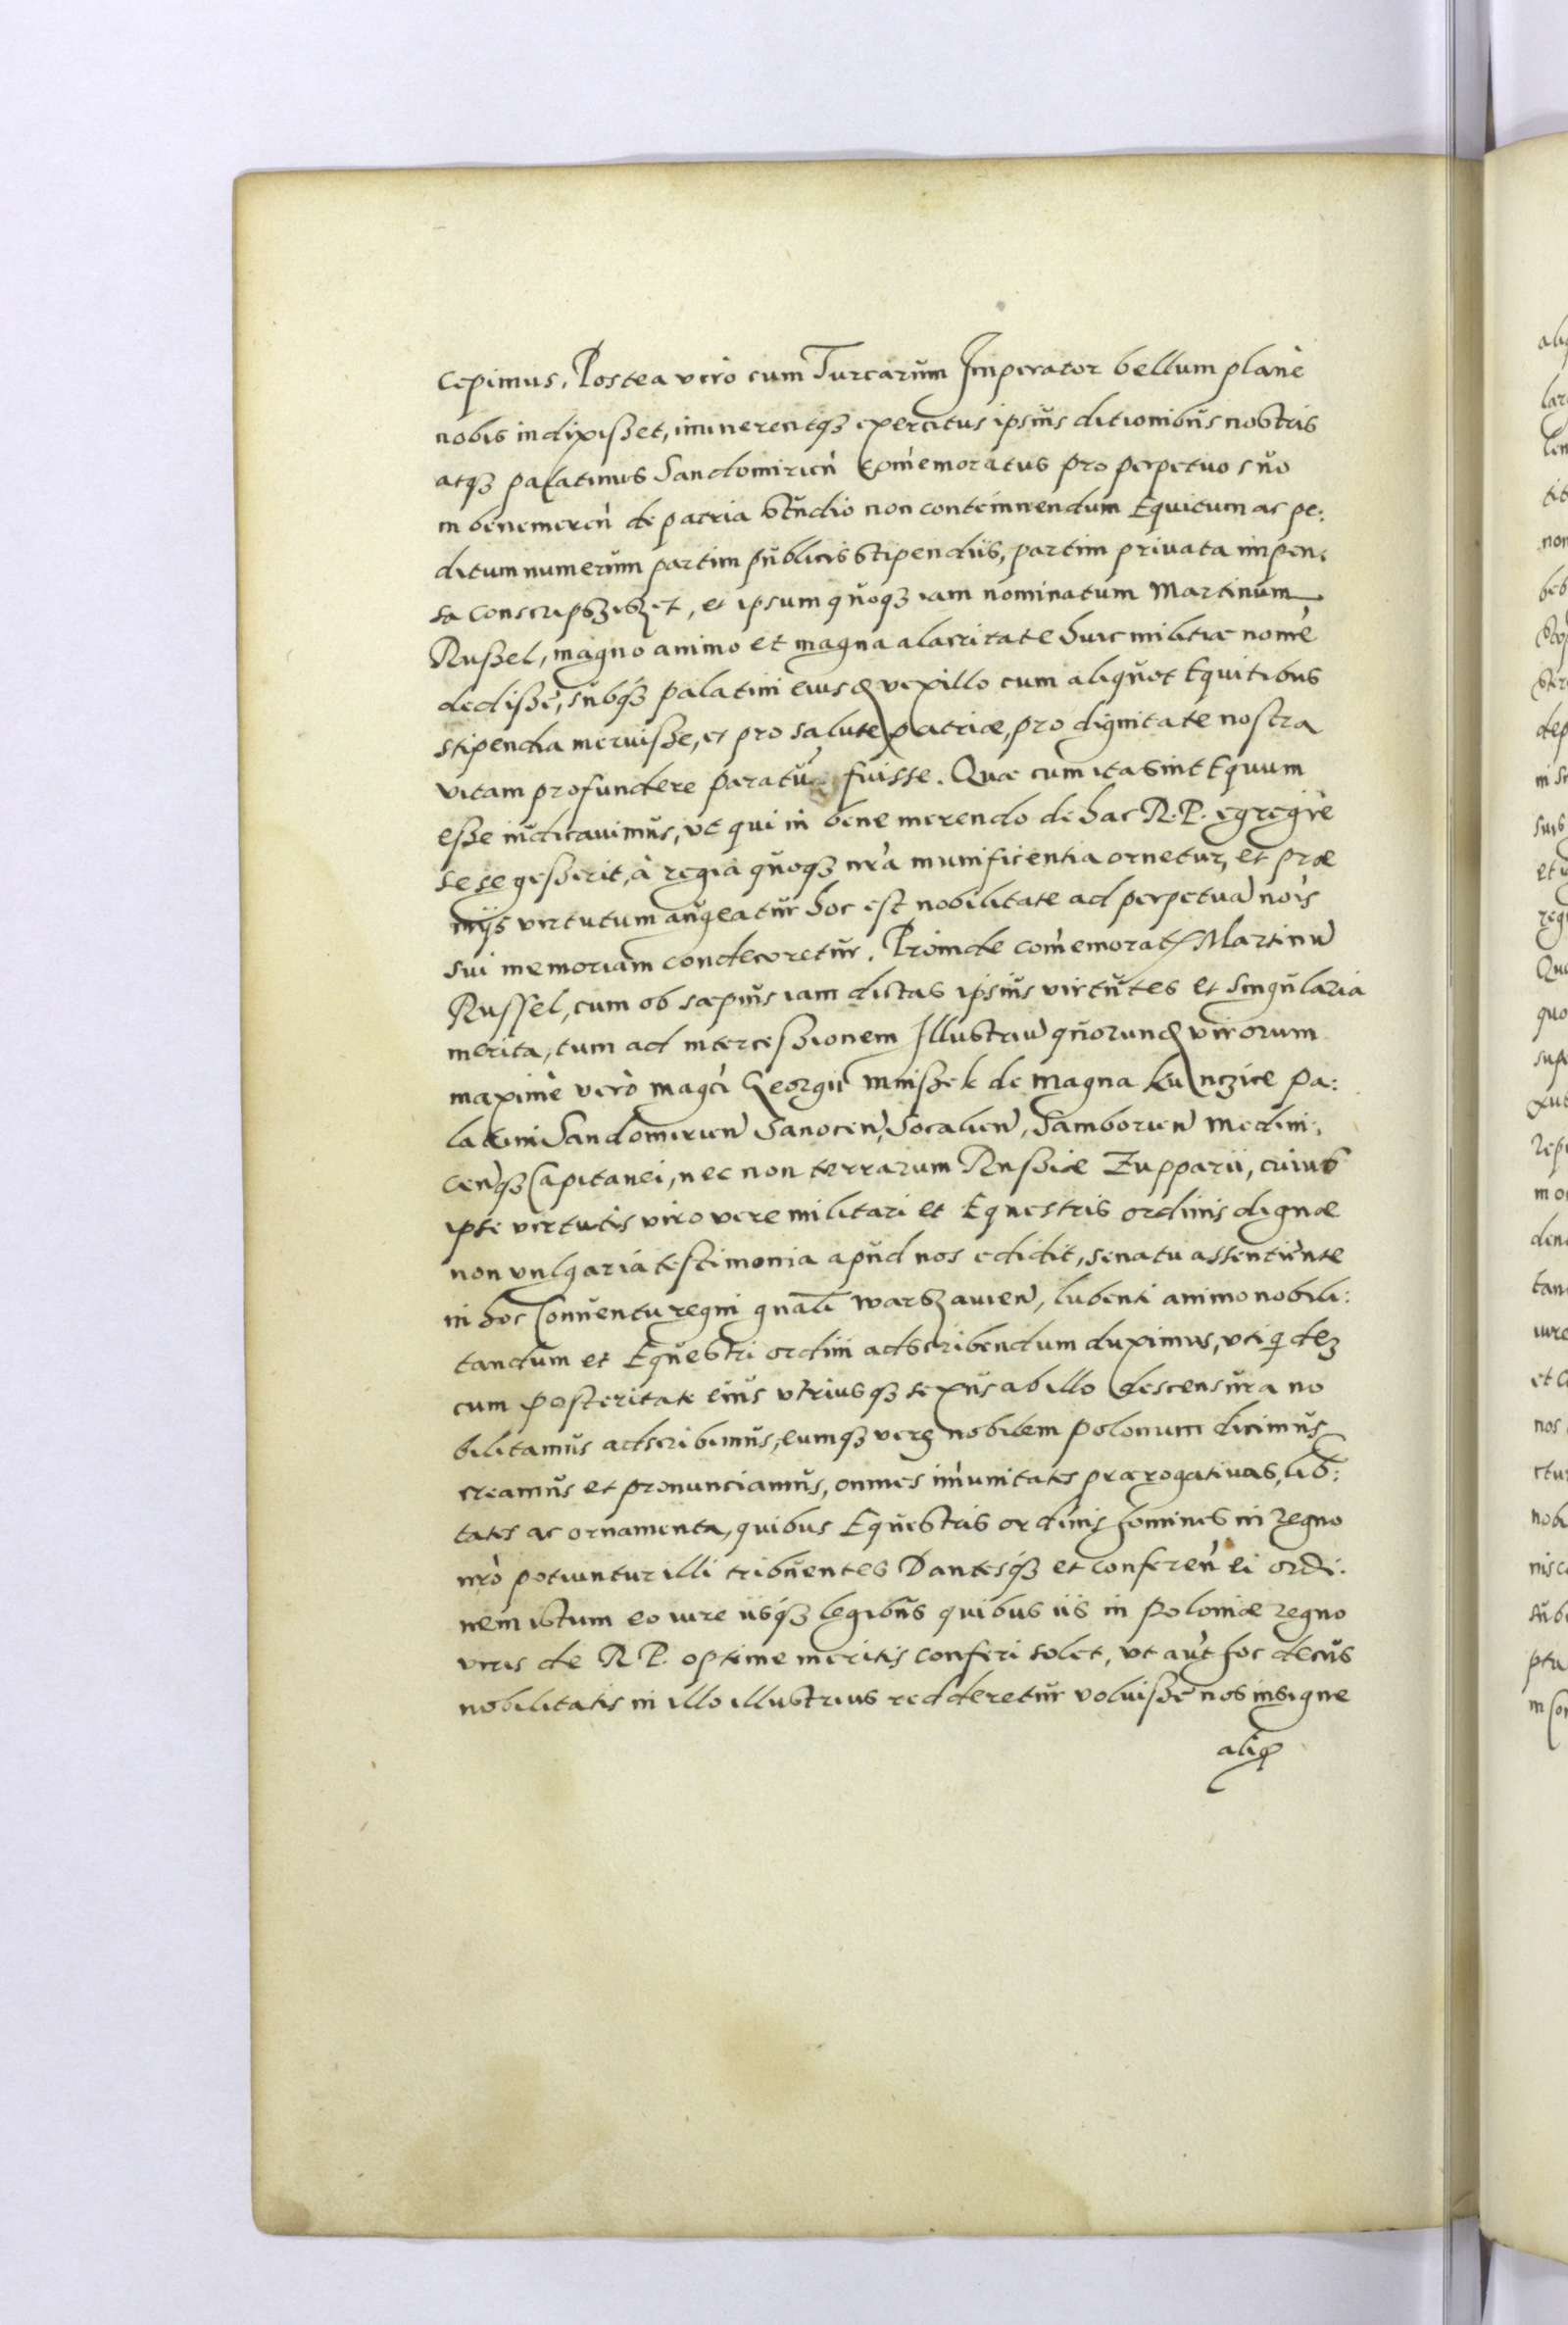 cepimus, Postea verò cum Turcarum Imperator bellum planè
nobis indixißet, iminerentq₃ exercitus ipsius ditionibus nostris
atq₃ palatinus Sandomirien̄ com̄emoratus pro perpetuo suo
in benemeren̄ de patria studio non contemnendum Equitum ac pe:
ditum numerum partim publicis stipendiis, partim privata impen:
sa conscripsißet, et ipsum quoq₃ iam nominatum Martinum
Rußel, magno animo et magna alacritate huic militiæ nomē
dediße, subq₃ palatini eiusd vexillo cum aliquot Equitibus
stipendia meruiße, et pro salute patriæ, pro dignitate nostra
vitam profundere paratū fuisse. Quæ cum ita sint Equum
eße iudicavimus, vt qui in bene merendo de hac R.P. egregiè
se se geßerit, à regia quoq₃ nr̄a munificentia ornetur, et præ
mijs virtutum augeatur hoc est nobilitate ad perpetuā noīs
sui memoriam condecoretur. Proinde com̄emorat Martinū
Russel, cum ob sæpius iam dictas ipsius virtutes et singularia
merita, tum ad interceßionem Illustriū quorund virorum
maximè verò maḡci Georgii Mnißek de Magna Kunczice pa:
latini Sandomirien̄ Sanocen̄, Socalien̄, Samborien̄ Medini:
cen̄q₃ Capitanei, nec non terrarum Rußiæ Zupparii, cuius
ipse virtutis viro vere militari et Equestris ordinis dignæ
non vulgaria testimonia apud nos edidit, senatu assentiente
in hoc Conventu regni gn̄ali Warszavien̄, lubenti animo nobili:
tandum et Equestri ordini adscribendum duximus, vti qdē
cum posteritate eius vtriusq₃ sexus ab illo descensura no
bilitamus adscribimus, eumq₃ verē nobilem polonum dicimus
creamus et pronunciamus, omnes im̄unitates prærogativas, lib̄:
tates ac ornamenta, quibus Equestris ordinis homines in regno
nr̄o potiuntur illi tribuentes Dantesq₃ et conferen̄ ei ordi:
nem istum eo iure iisq₃ legibus quibus iis in Poloniæ regno
viris de R.P. optime meritis conferi solet, vt aūt hoc decus
nobilitatis in illo illustrius redderetur voluiße nos insigne
aliq